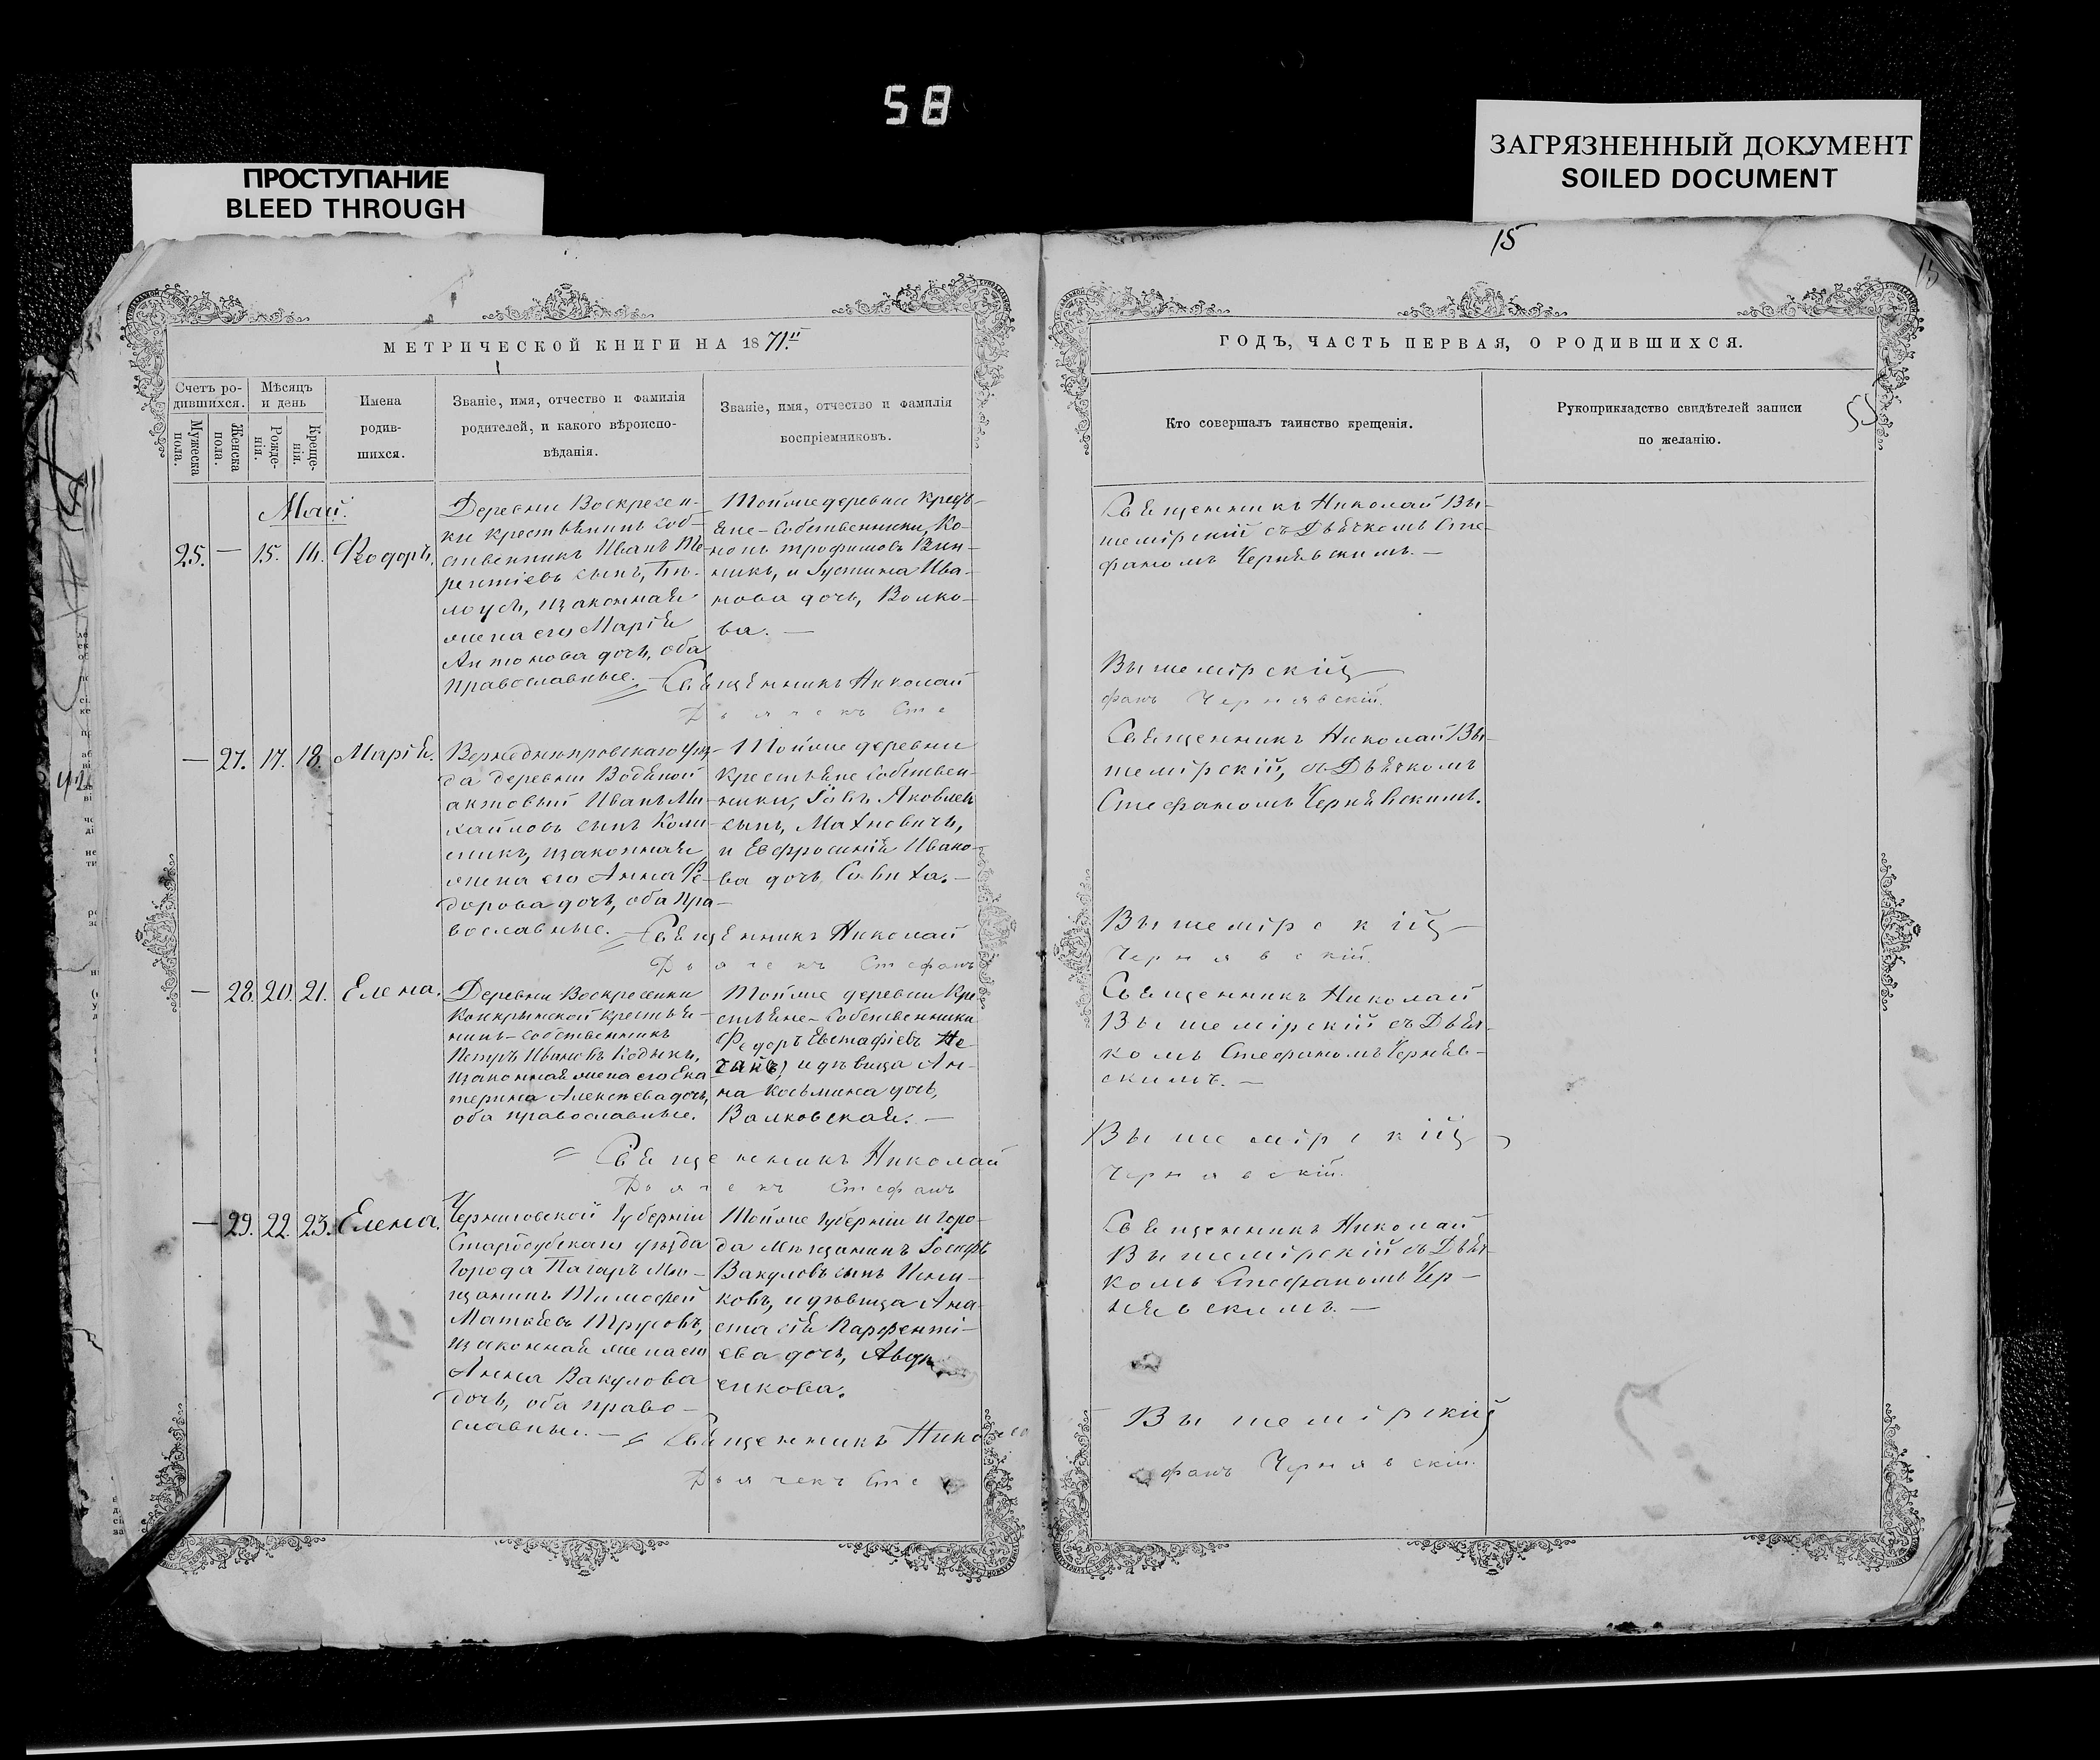 58
ПРОСТУПАНИЕ
BLEED THROUGH
ЗАГРЯЗНЕННЫЙ ДОКУМЕНТ
SOILED DOCUMENT
МЕТРИЧЕСКОЙ КНИГИ НА 1871
Счетъ ро-
дившихся.
Мужеска
пола.
Женска
пола.
Мѣсяцъ
и день
Рожде-
нія.
Креще-
нія.
Имена
родив-
шихся.
Званіе, имя, отчество и фамилія
родителей, и какого вѣроиспо-
вѣданія.
Званіе, имя, отчество и фамилія
воспріемниковъ.
Май.
25. — 15. Ѳеодоръ.
Деревни Воскресен-
ки крестьянинъ соб-
ственникъ Иванъ Те-
рентіевъ сынъ,
и законная
жена его Марія
Антонова дочь, оба
православные.
Тойже деревни крестья-
яне-собственники, Ко-
нонъ Трофимовъ Вин-
никъ, и Іустина Ива-
нова дочь, Волко-
ва. —
Священникъ Николай
Дьячекъ Сте
— 27. 17. 18. Марія.
Верхнеднѣпровскаго уѣз-
да деревни Водяной
Иванъ Ми-
хайловъ сынъ Коли-
сникъ, и законная
жена его Анна Ѳе-
дорова дочь, оба пра-
вославные.
Тойже деревни
крестьяне собствен-
ники, Іовъ Яковлевъ
сынъ, Махновичъ,
и Евфросинія Ивано-
ва дочь, Савиха. —
Священникъ Николай
Дьячекъ Стефанъ
— 28. 20. 21. Елена.
Деревни Воскресенки
крестья-
нинъ-собственникъ
Петръ Ивановъ
и законная жена его Ека-
терина Алексѣева дочь,
оба православные.
Тойже деревни кре-
стьяне-собственники
Ѳедоръ Евстафіевъ
и дѣвица Ан-
на Косьмина дочь,
Волковская. —
Священникъ Николай
Дьячекъ Стефанъ
— 29. 22. 23. Елена.
Черниговской губерніи
Стародубскаго уѣзда
города Погаръ мѣ-
щанинъ Тимофей
Матвѣевъ Трусовъ,
и законная жена его
Анна Вакулова
дочь, оба право-
славные. —
Тойже губерніи и горо-
да мѣщанинъ Іосифъ
Вакуловъ сынъ
ковъ, и дѣвица Ана-
стасія Парфенті-
ева дочь,
енкова.
Священникъ Николай
Дьячекъ Сте
15
15
ГОДЪ, ЧАСТЬ ПЕРВАЯ, О РОДИВШИХСЯ.
Кто совершалъ таинство крещенія.
Рукоприкладство свидѣтелей записи
по желанію.
Священникъ Николай Вы-
шемірскій съ Дьячкомъ Сте-
фаномъ Чернявскимъ. —
Вышемірскій
фанъ Чернявскій.
Священникъ Николай Вы-
шемірскій, съ Дьячкомъ
Стефаномъ Чернявскимъ.
Вышемірскій
Чернявскій.
Священникъ Николай
Вышемірскій съ Дьяч-
комъ Стефаномъ Черняв-
скимъ. —
Вышемірскій
Чернявскій.
Священникъ Николай
Вышемірскій съ Дьяч-
комъ Стефаномъ Чер-
нявскимъ. —
Вышемірскій
фанъ Чернявскій.